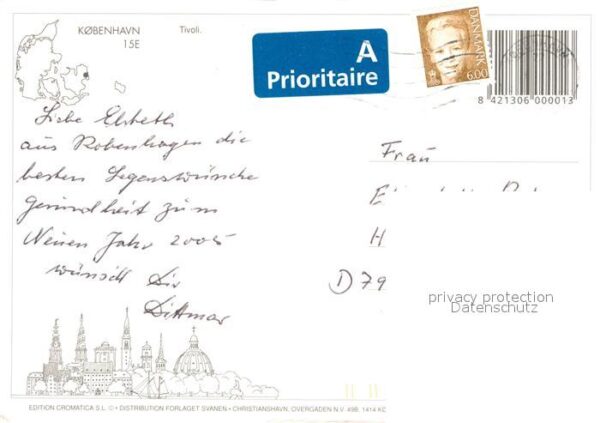 KØBENHAVN
15E
Tivoli.
A
Prioritaire
DANMARK
6.00
8 421306 000013
Liebe Elsbeth
aus Kobenhagen die
besten Segenswünsche
Gesundheit zum
Neuen Jahr 2005
wünscht Dir
Dittmar
Frau
E
H
D 79
privacy protection
Datenschutz
EDITION CROMATICA S.L. © • DISTRIBUTION FORLAGET SVANEN • CHRISTIANSHAVN, OVERGADEN N.V. 49B, 1414 K